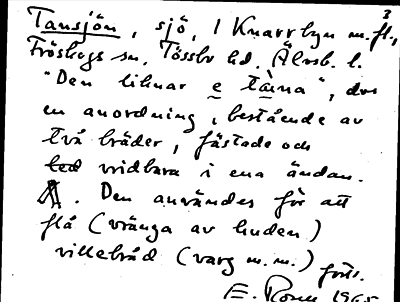 3
Tansjön, sjö, i Knarrbyn m.fl.,
Fröskogs sn, Tössbo hd. Älvsb. l.
"Den liknar e tàina", dvs
en anordning, bestående av
två bräder, fästade och
led vridbara i ena ändan.
Den användes för att
flå (vränga av huden)
villebråd (varg m.m.) forts.
E. Rosen 1965